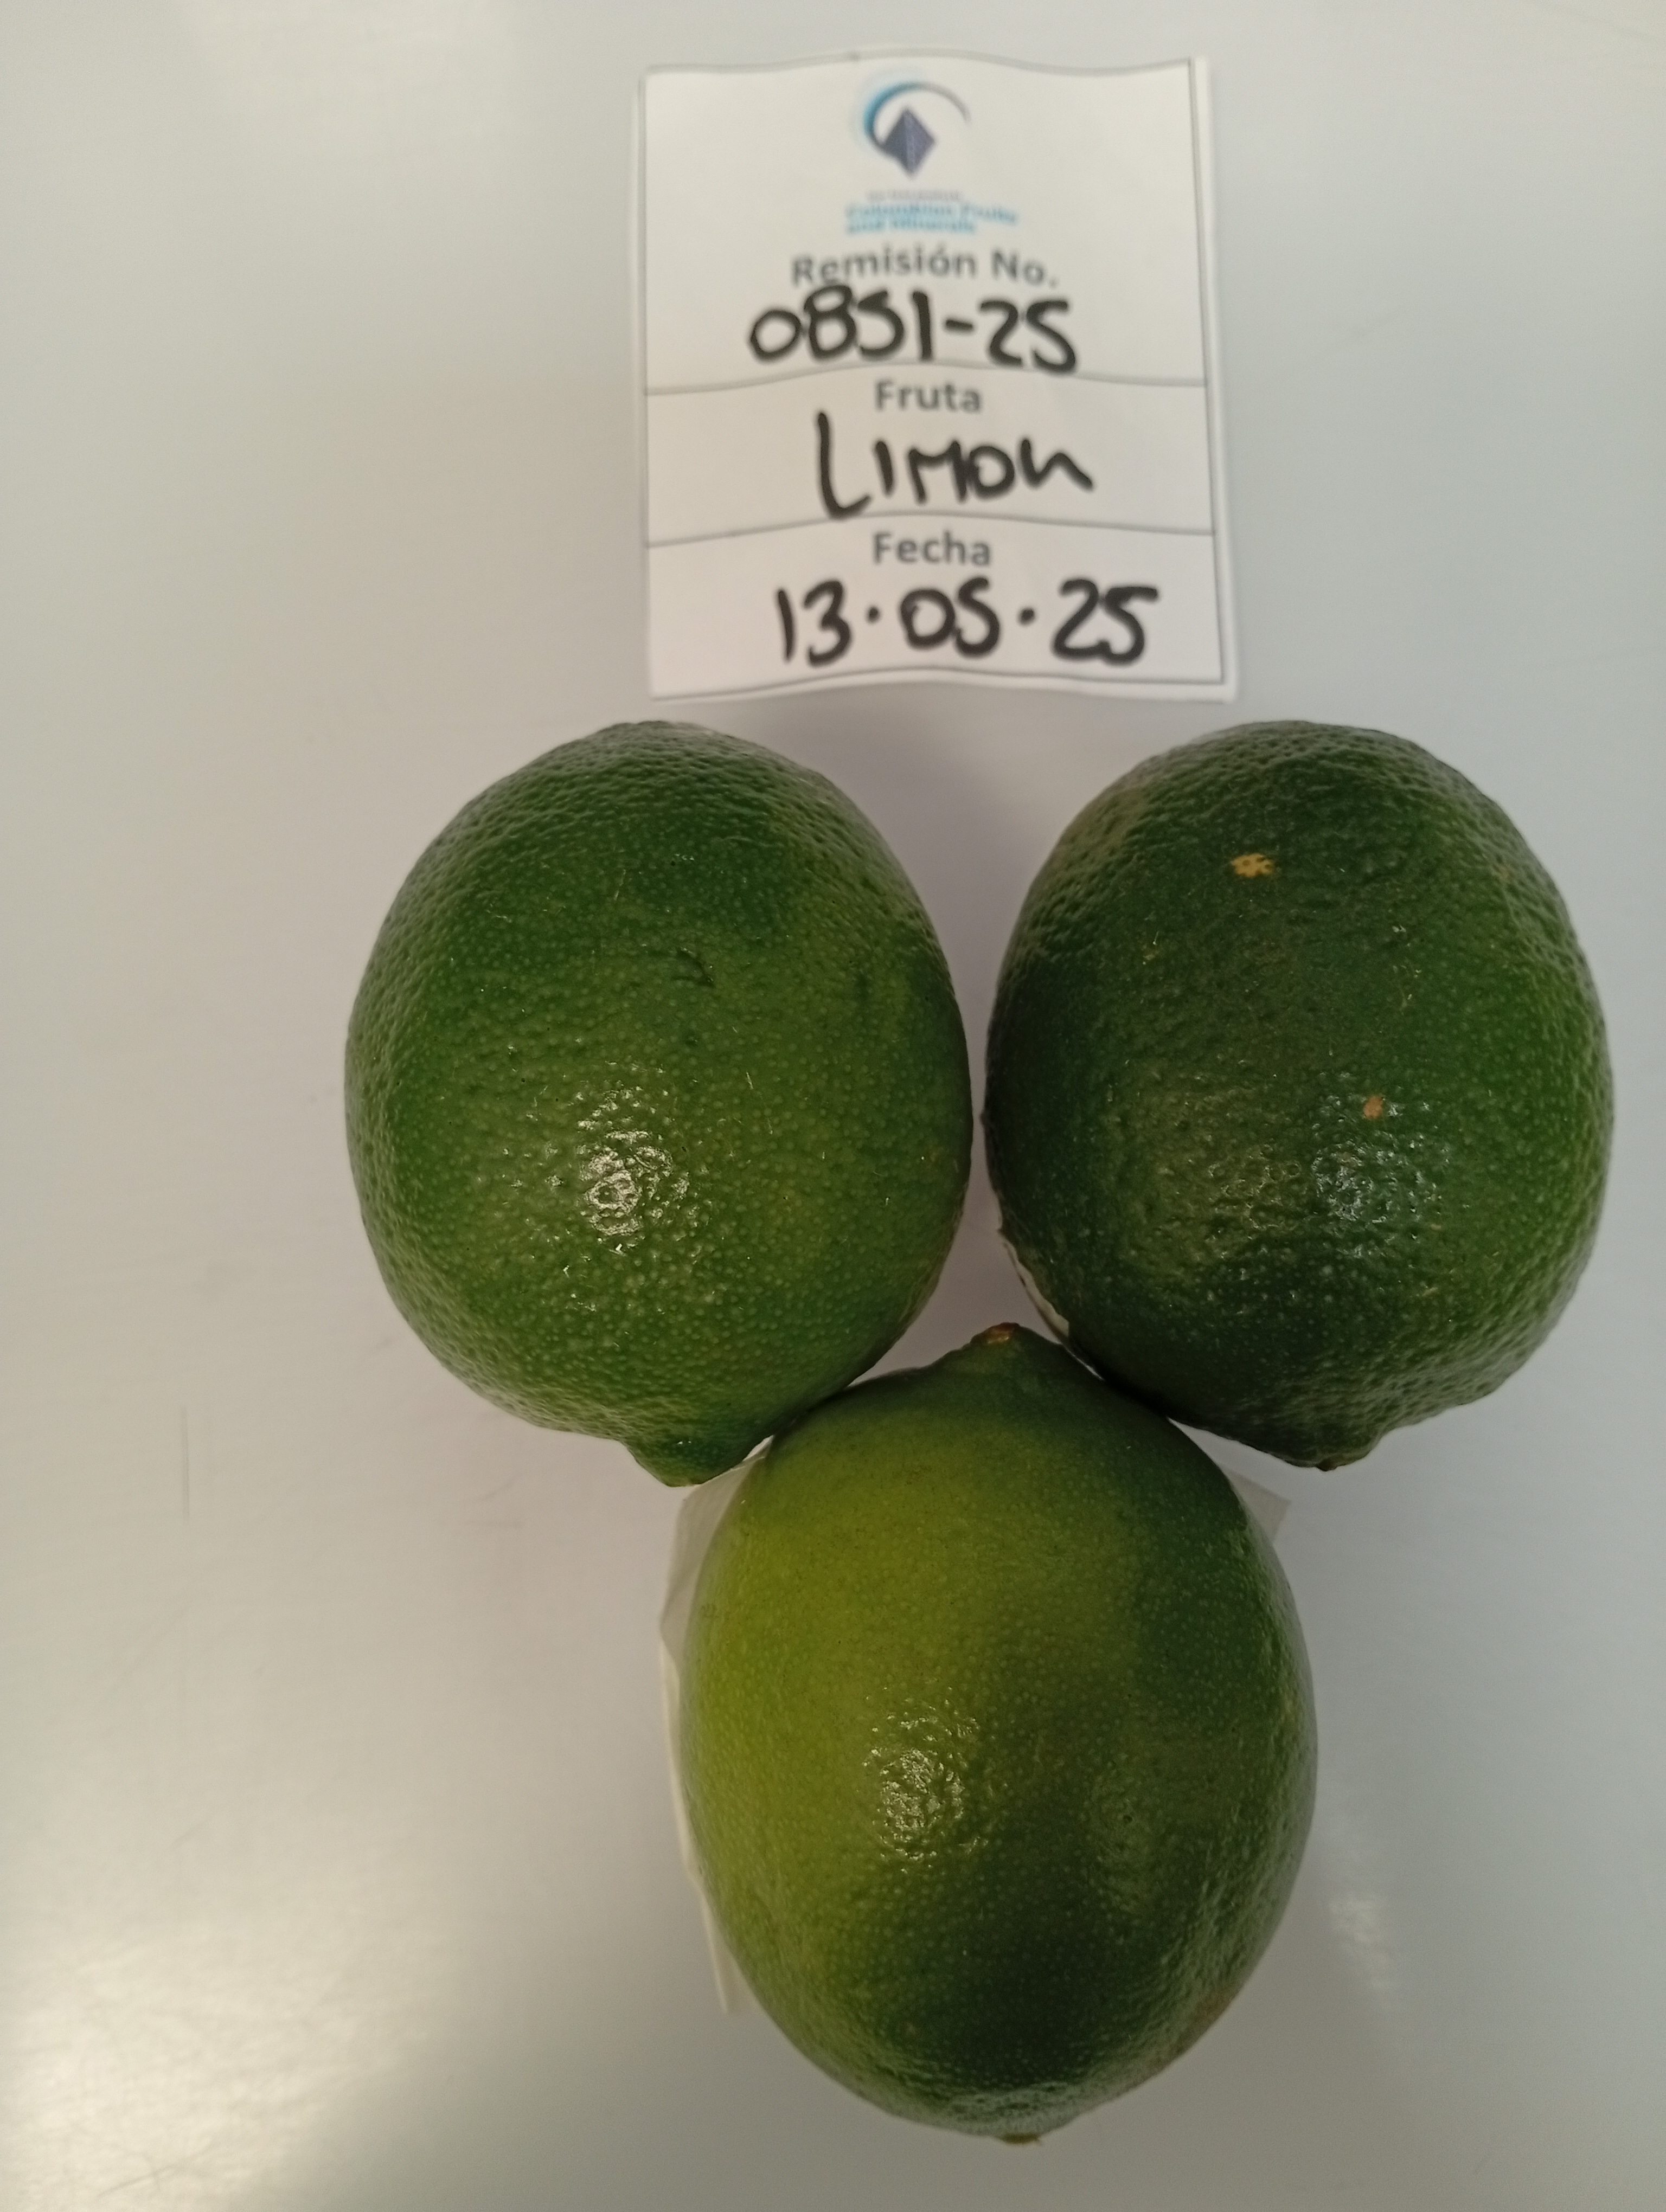 Colombian Fruits
and Minerals
Remisión No.
0851-25
Fruta
LIMON
Fecha
13·05·25